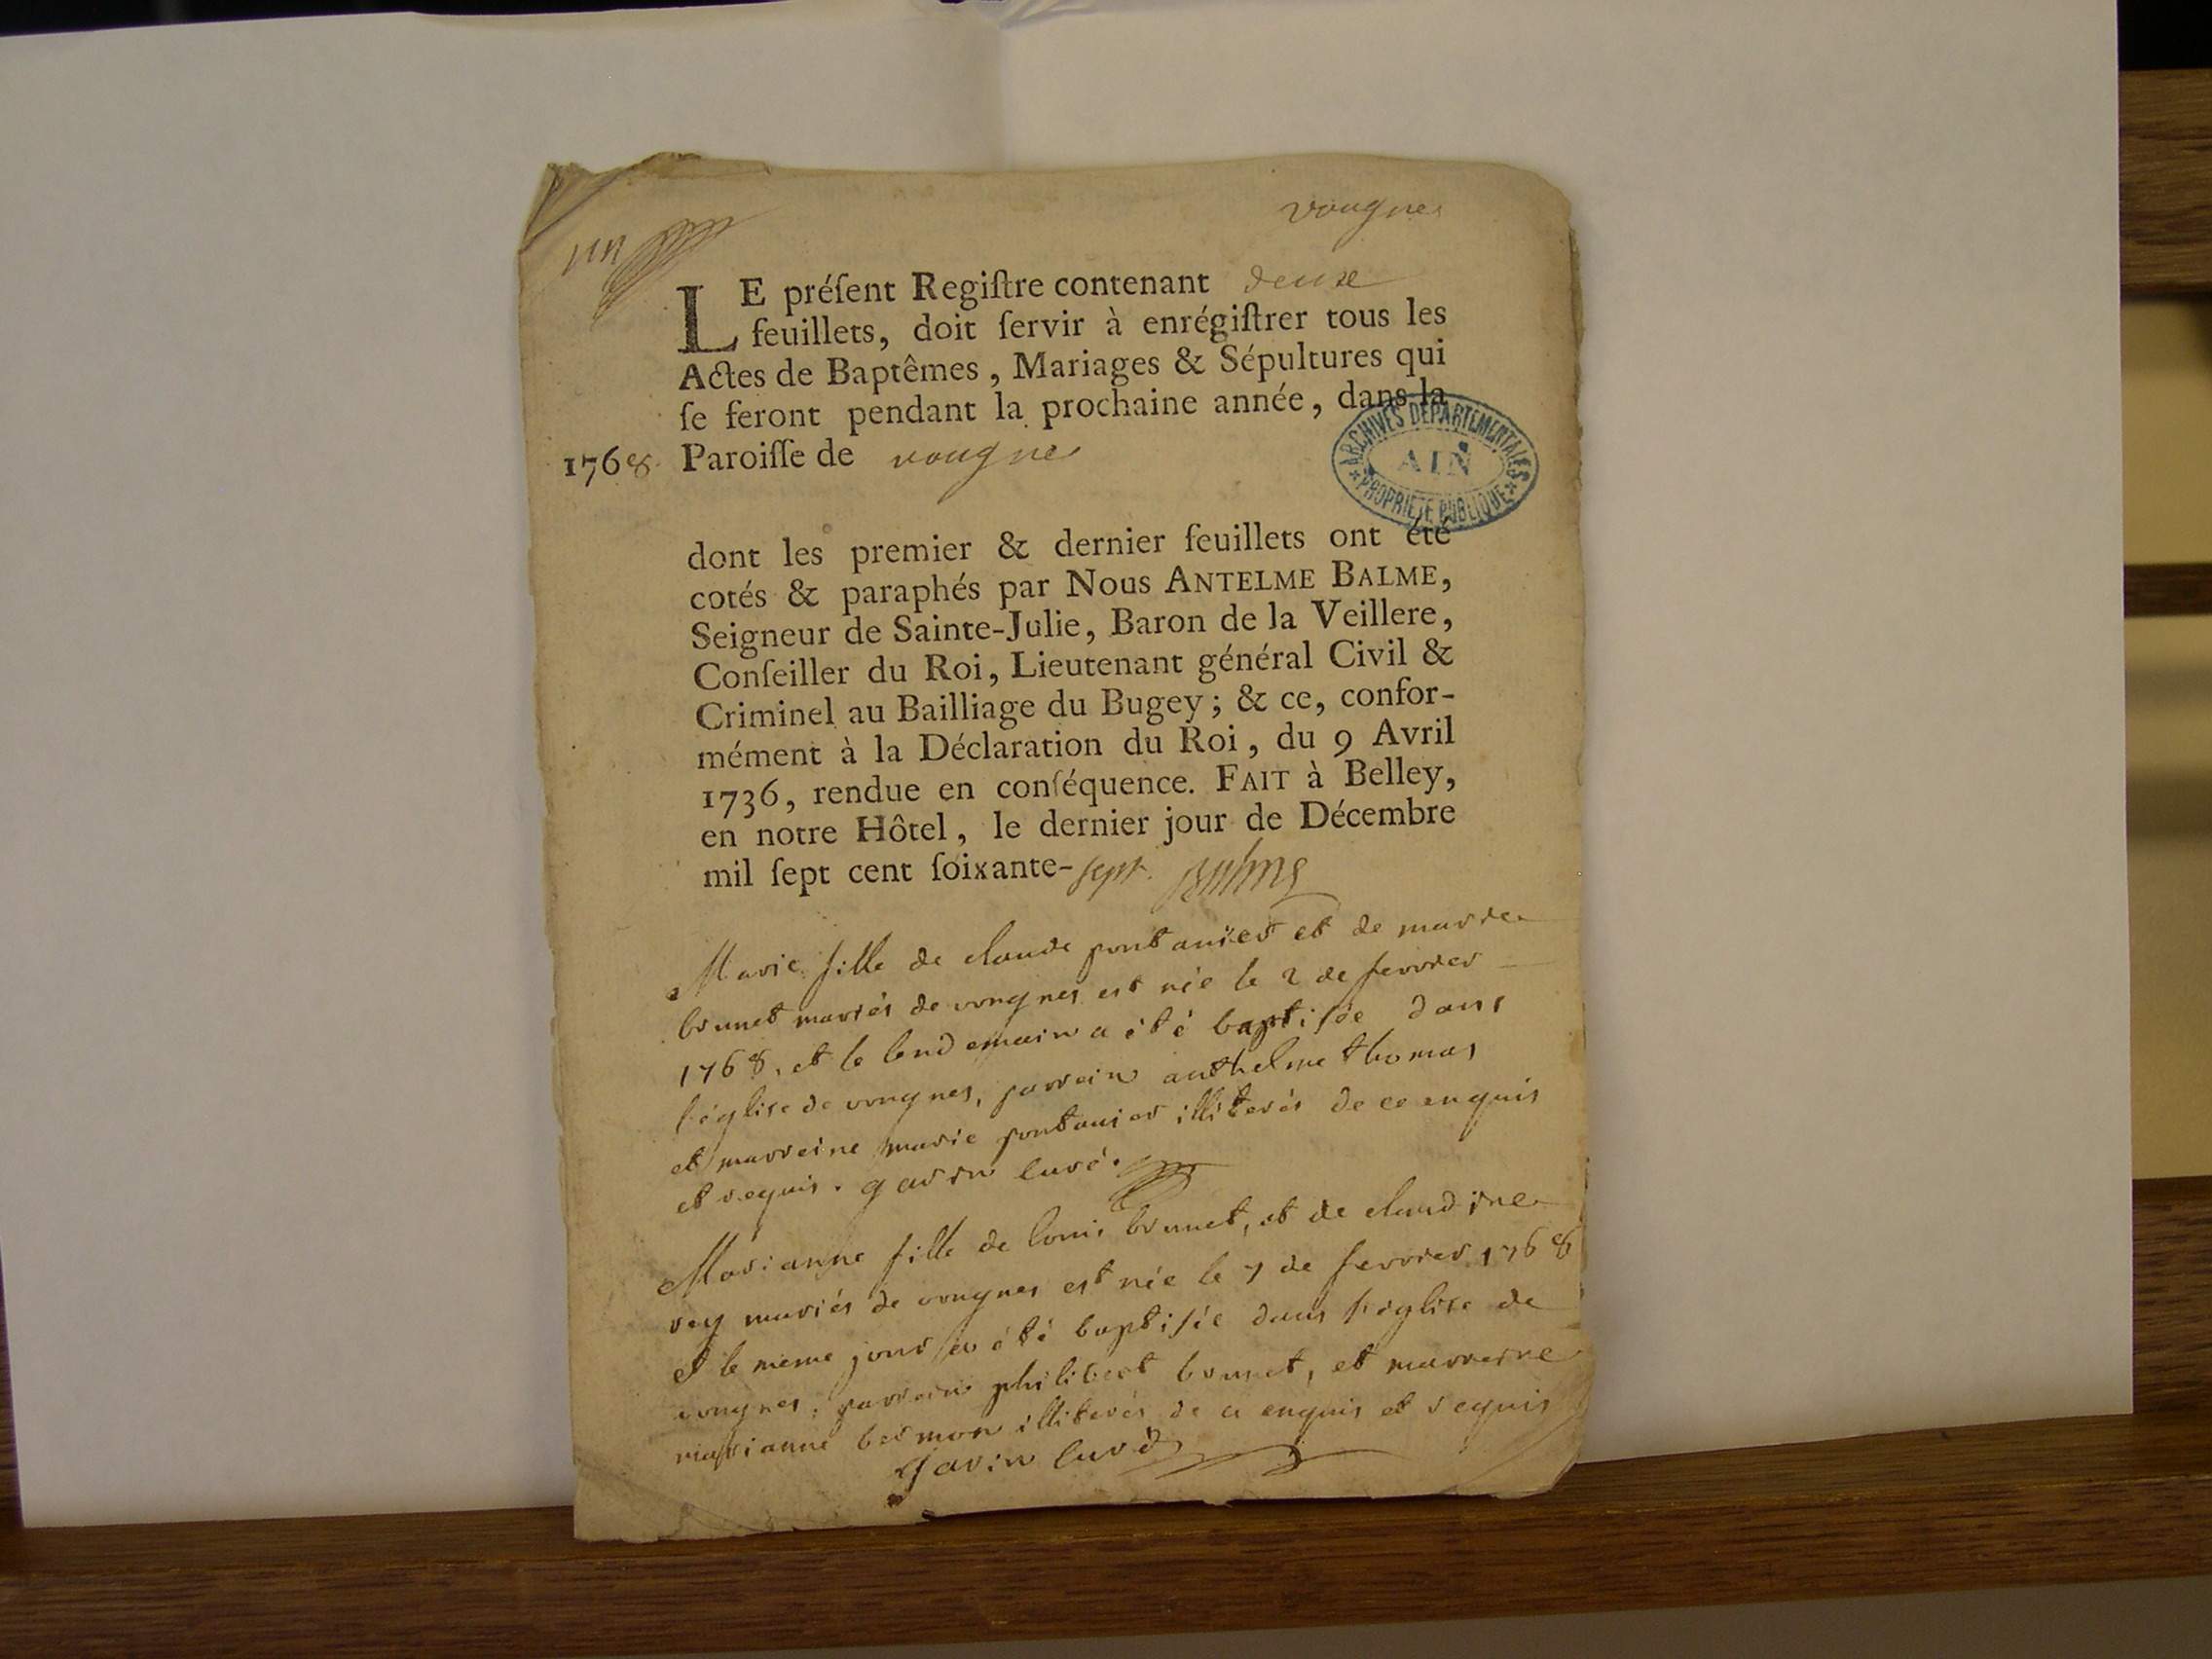 un
vougnes
LE préſent Regiſtre contenant deux
feuillets, doit ſervir à enrégiſtrer tous les
Actes de Baptêmes, Mariages & Sépultures qui
ſe feront pendant la prochaine année, dans la
1768. Paroiſſe de vougnes
ARCHIVES DÉPARTEMENTALES
AIN
PROPRIÉTÉ PUBLIQUE
dont les premier & dernier feuillets ont été
cotés & paraphés par Nous ANTELME BALME,
Seigneur de Sainte-Julie, Baron de la Veillere,
Conſeiller du Roi, Lieutenant général Civil &
Criminel au Bailliage du Bugey; & ce, confor-
mément à la Déclaration du Roi, du 9 Avril
1736, rendue en conſéquence. FAIT à Belley,
en notre Hôtel, le dernier jour de Décembre
mil ſept cent ſoixante-sept. Balme
Marie fille de claude pontanier et de marie
brunet mariés de vougnes est née le 2 de fevrier
1768, et le lendemain a été baptisée dans
l'église de vougnes, parrein anthelme thomas
et marreine marie pontanier illiterés de ce enquis
et requis. gavin curé.
Marianne fille de louis brunet, et de claudine
rey mariés de vougnes est née le 7 de fevrier 1768
et le meme jour a été baptisée dans l'église de
vougnes, parrein philibert brunet, et marreine
marianne bermon illiterés de ce enquis et requis
gavin curé